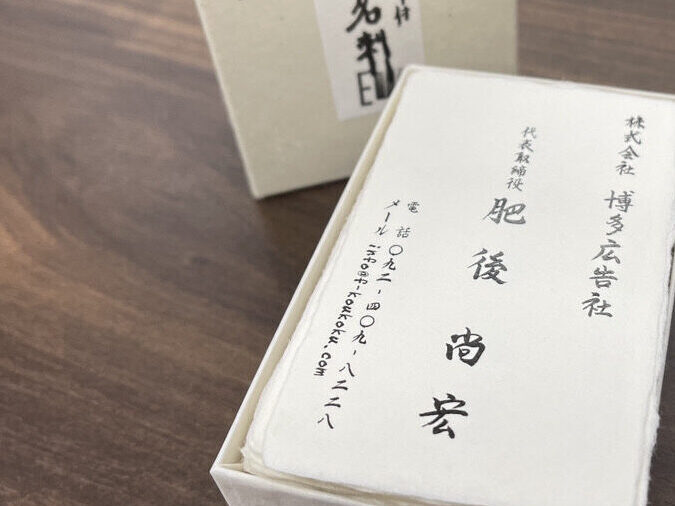 株式会社 博多広告社
代表取締役 肥後 尚宏
電話 〇九二-四〇九-八二二八
メール info@h-koukoku.com